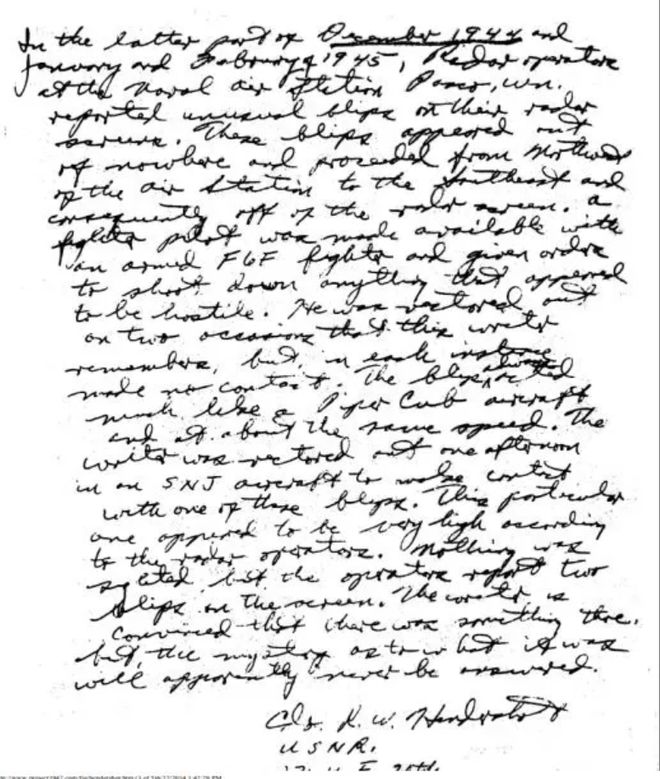 In the latter part of December 1944 and
January and February of 1945, Radar operators
at the Naval Air Station Pasco, Wn.
reported unusual blips on their radar
screens. These blips appeared out
of nowhere and proceeded from Northwest
of the Air Station to the Southeast and
consequently off of the radar screen. A
fighter pilot was made available with
an armed F6F fighter and given orders
to shoot down anything that appeared
to be hostile. He was vectored out
on two occasions that this writer
remembers, but, in each instance
made no contact. The blips always acted
much like a Piper Cub aircraft
and at about the same speed. The
writer was vectored out one afternoon
in an SNJ aircraft to make contact
with one of these blips. This particular
one appeared to be very high according
to the radar operators. Nothing was
sighted but the operators report two
blips on the screen. The writer is
convinced that there was something there.
but, the mystery as to what it was
will apparently never be answered.
R. W.
USNR.